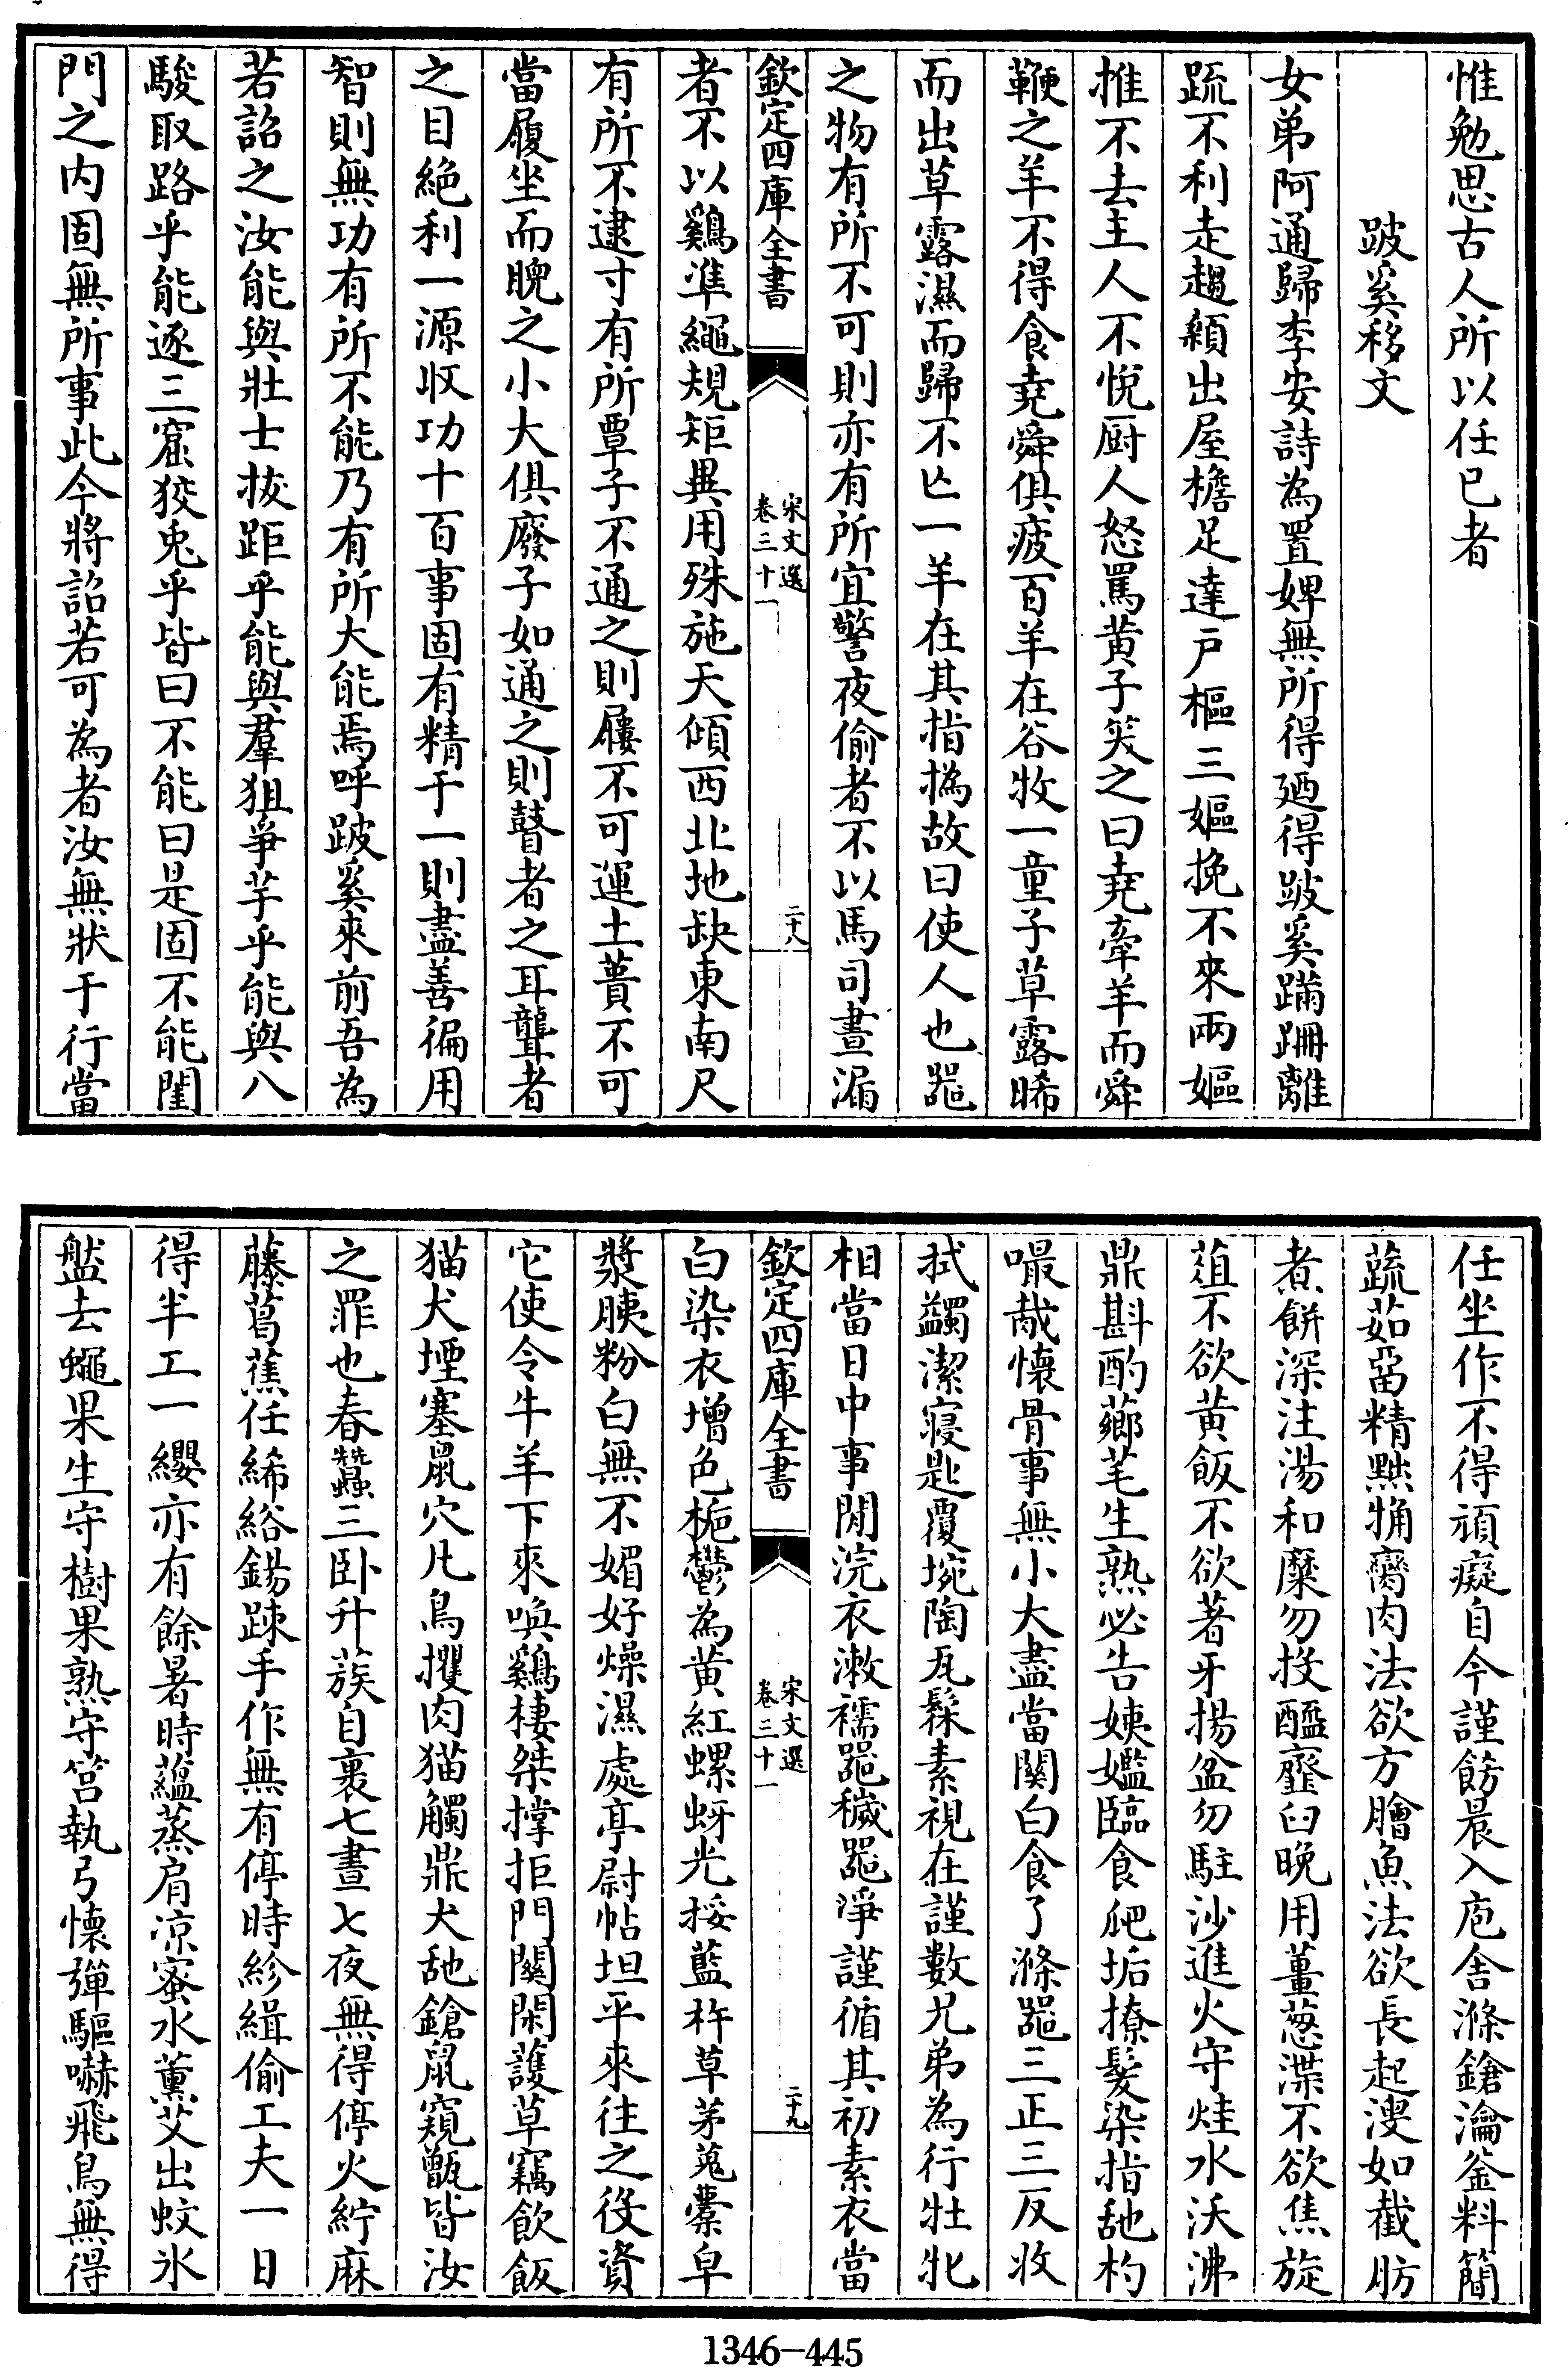 惟勉思古人所以任已者
跛奚移文
女弟阿通歸李安詩為置婢無所得廼得跛奚蹣跚離
疏不利走趨顙出屋檐足達戸樞三嫗挽不來兩嫗
推不去主人不悅厨人怒罵黄子笑之曰堯牽羊而舜
鞭之羊不得食堯舜俱疲百羊在谷牧一童子草露晞
而出草露濕而歸不亡一羊在其指撝故曰使人也器
之物有所不可則亦有所宜警夜偷者不以馬司晝漏
欽定四庫全書
宋文選
卷三十一
二十八
者不以鷄準繩規矩異用殊施天傾西北地缺東南尺
有所不逮寸有所覃子不通之則屨不可運土蕢不可
當履坐而睨之小大俱廢子如通之則瞽者之耳聾者
之目絶利一源收功十百事固有精于一則盡善徧用
智則無功有所不能乃有所大能焉呼跛奚來前吾為
若詔之汝能與壯士拔距乎能與羣狙爭芧乎能與八
駿取路乎能逐三窟狡兎乎皆曰不能曰是固不能閨
門之内固無所事此今將詔若可為者汝無狀于行當
任坐作不得頑癡自今謹飭晨入庖舍滌鎗瀹釡料簡
蔬茹留精黜觕臠肉法欲方膾魚法欲長起溲如截肪
煮餅深注湯和糜勿投醯齏臼晚用薑葱渫不欲焦旋
葅不欲黄飯不欲著牙揚盆勿駐沙進火守烓水沃沸
鼎斟酌薌芼生熟必告姨嫗臨食爬垢撩髮染指䑛杓
嘬胾懷骨事無小大盡當闗白食了滌器三正三反收
拭蠲潔寢匙覆㙻陶瓦髹素視在謹數兄弟為行牡牝
相當日中事閒浣衣漱襦器穢器淨謹循其初素衣當
欽定四庫全書
宋文選
卷三十一
二十九
白染衣增色梔鬱為黄紅螺蚜光挼藍杵草茅蒐橐皁
漿胰粉白無不媚好燥濕處亭尉帖坦平來往之役資
它使令牛羊下來喚鷄棲桀撑拒門闗閑護草竊飲飯
猫犬堙塞鼠穴凡鳥攫肉猫觸鼎犬䑛鎗鼠窺甑皆汝
之罪也春蠶三卧升蔟自裹七晝七夜無得停火紵麻
藤葛蕉任絺綌錫踈手作無有停時紾緝偷工夫一日
得半工一纓亦有餘暑時蘊蒸肩凉蜜水薰艾出蚊氷
盤去蠅果生守樹果熟守筥執弓懷彈驅嚇飛鳥無得
1346-445